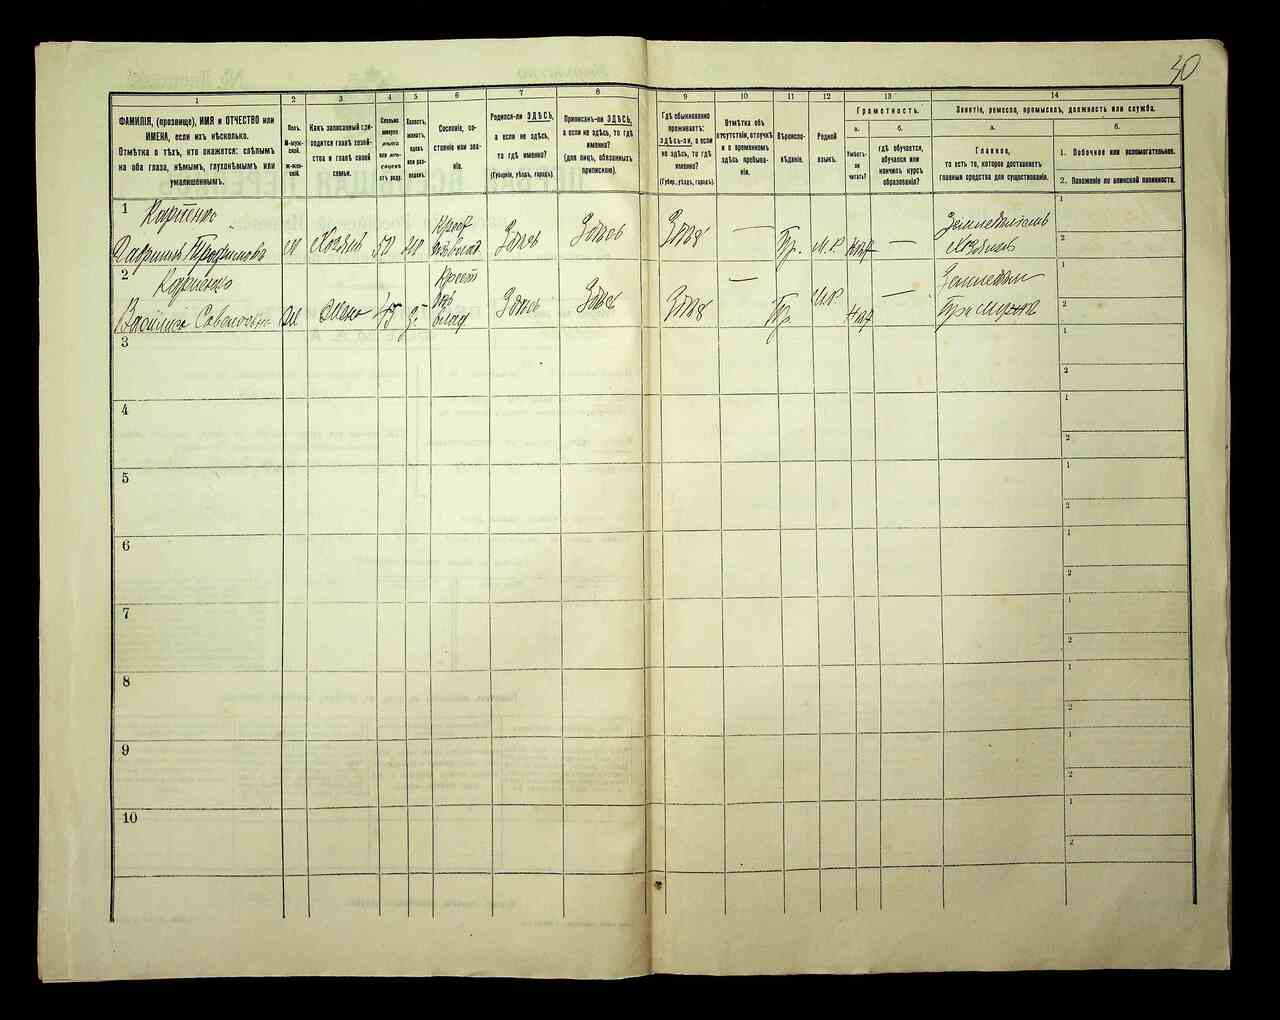 30
1
2
3
4
5
6
7
8
9
10
11
12
13
14
ФАМИЛІЯ, (прозвище), ИМЯ и ОТЧЕСТВО или
ИМЕНА, если ихъ нѣсколько.
Отмѣтка о тѣхъ, кто окажется: слѣпымъ
на оба глаза, нѣмымъ, глухонѣмымъ или
умалишеннымъ.
Полъ.
М-муж-
ской.
ж-жен-
скій.
Какъ записанный при-
ходится главѣ хозяй-
ства и главѣ своей
семьи.
Сколько
минуло
лѣтъ
или мѣ-
сяцевъ
отъ роду.
Холостъ,
женатъ,
вдовъ
или раз-
веденъ.
Сословіе, со-
стояніе или зва-
ніе.
Родился-ли ЗДѢСЬ,
а если не здѣсь,
то гдѣ именно?
(Губернія, уѣздъ, городъ).
Приписанъ-ли ЗДѢСЬ,
а если не здѣсь, то гдѣ
именно?
(для лицъ, обязанныхъ
припискою).
Гдѣ обыкновенно
проживаетъ:
ЗДѢСЬ-ЛИ, а если
не здѣсь, то гдѣ
именно?
(Губер., уѣздъ, городъ).
Отмѣтка объ
отсутствіи, отлучкѣ
и о временномъ
здѣсь пребыва-
ніи.
Вѣроиспо-
вѣданіе.
Родной
языкъ.
Грамотность.
а.
б.
Умѣетъ-
ли
читать?
гдѣ обучается,
обучался или
кончилъ курсъ
образованія?
Занятіе, ремесло, промыселъ, должность или служба.
а.
б.
Главное,
то есть то, которое доставляетъ
главныя средства для существованія.
1. Побочное или вспомогательное.
2. Положеніе по воинской повинности.
1
Гавріилъ Трофимовъ м Хозяинъ 50 Здѣсь Здѣсь Здѣсь — Пр. М.Р. — Земледѣлецъ
Хозяинъ
2
Василій м 45 Здѣсь Здѣсь Здѣсь — Пр. М.Р. —
3
4
5
6
7
8
9
10